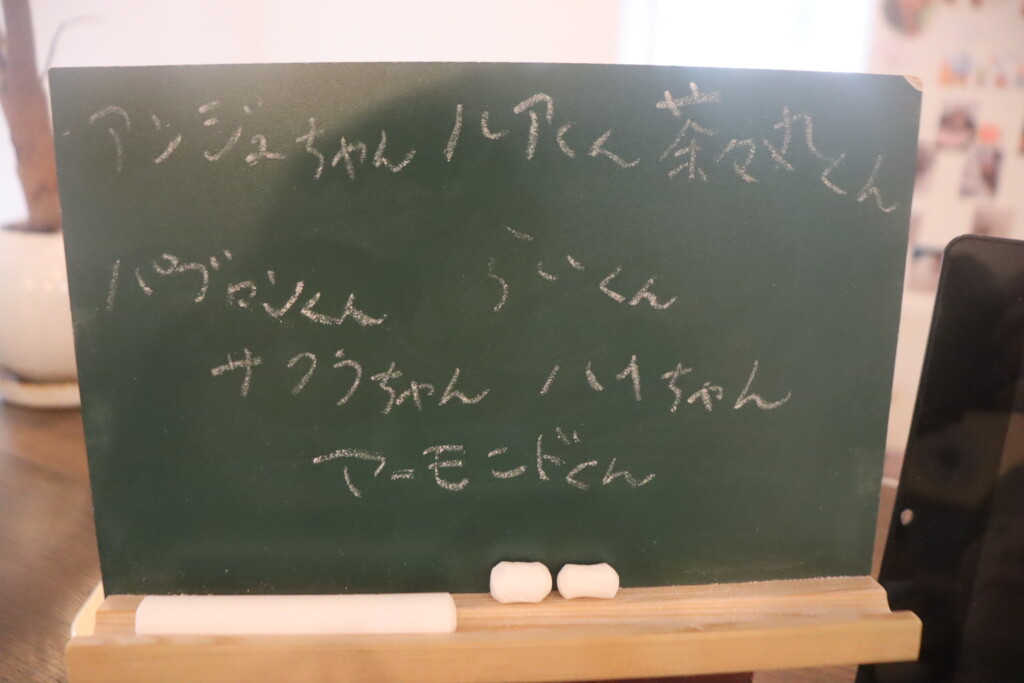 アンジュちゃん ルアくん 茶々丸くん
パブロンくん らいくん
サクラちゃん ハイちゃん
アーモンドくん